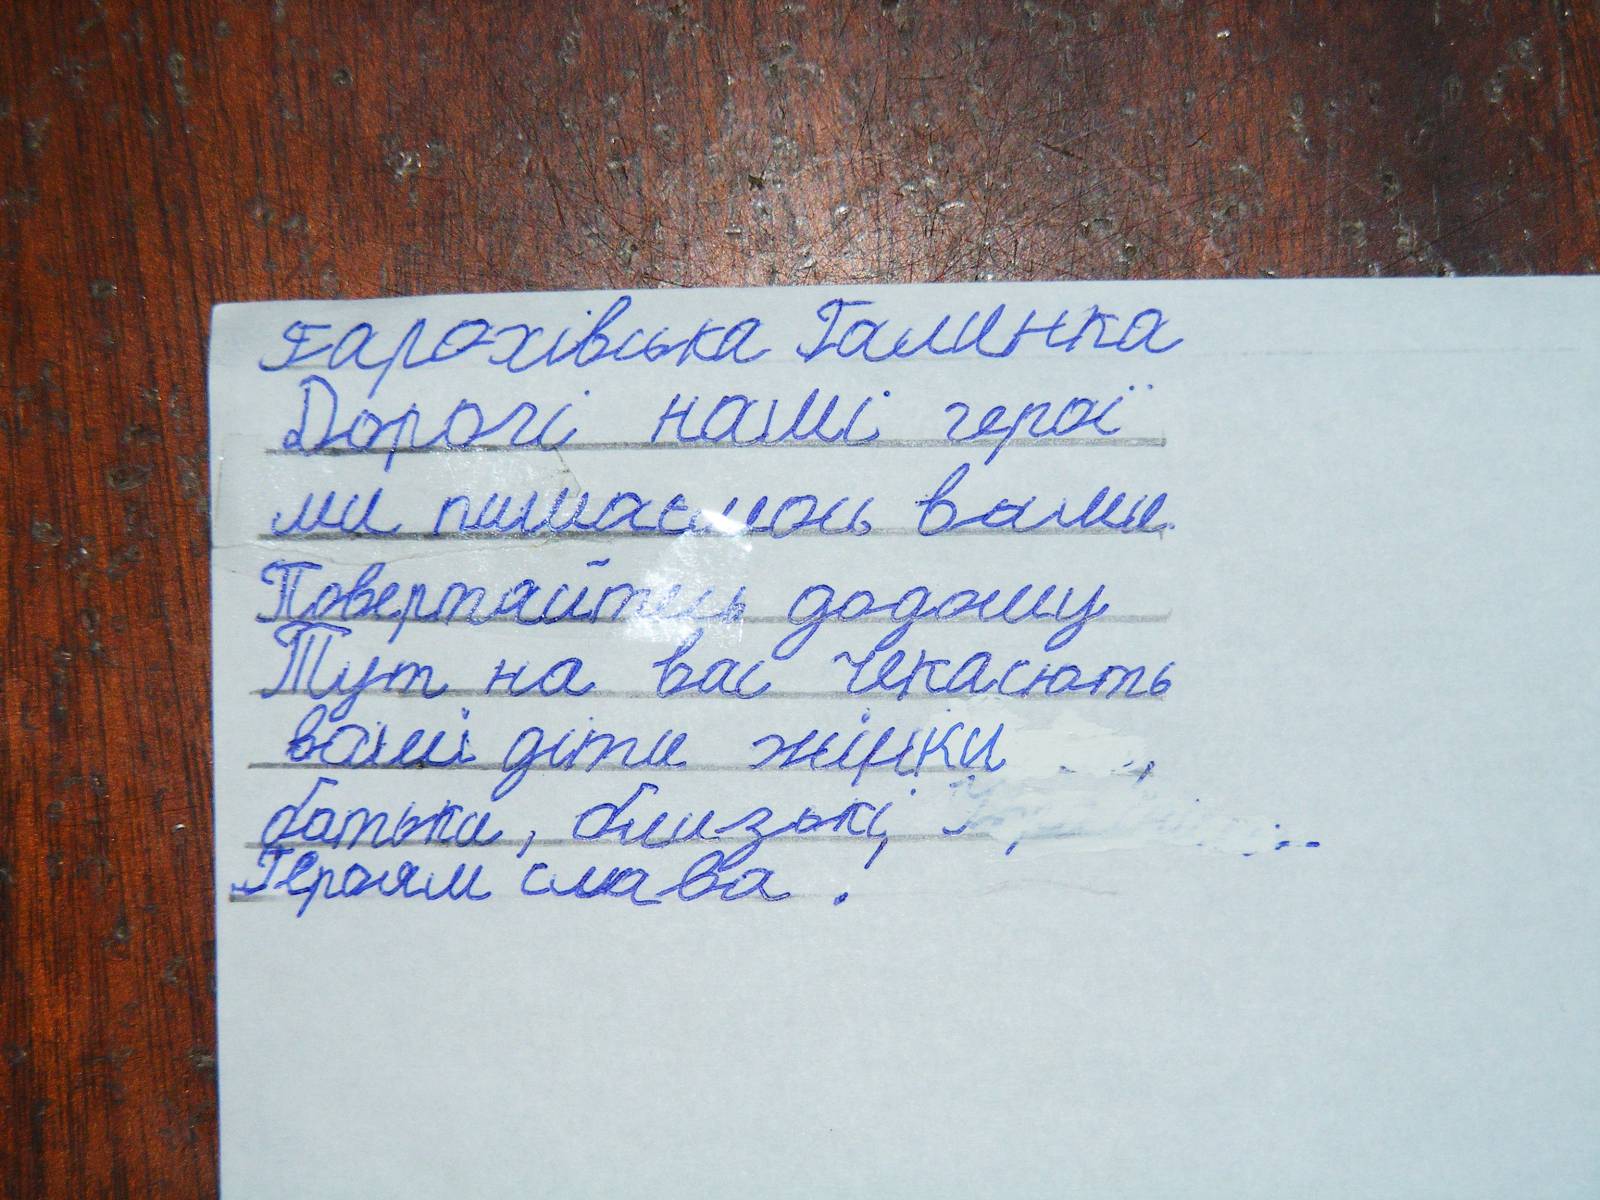 Гарохівська Галинка
Дорогі наші герої
ми пишаємось вами.
Повертайтесь додому
Тут на вас чекасють
ваші діти жінки ,
батьки, близькі,
Героям слава!